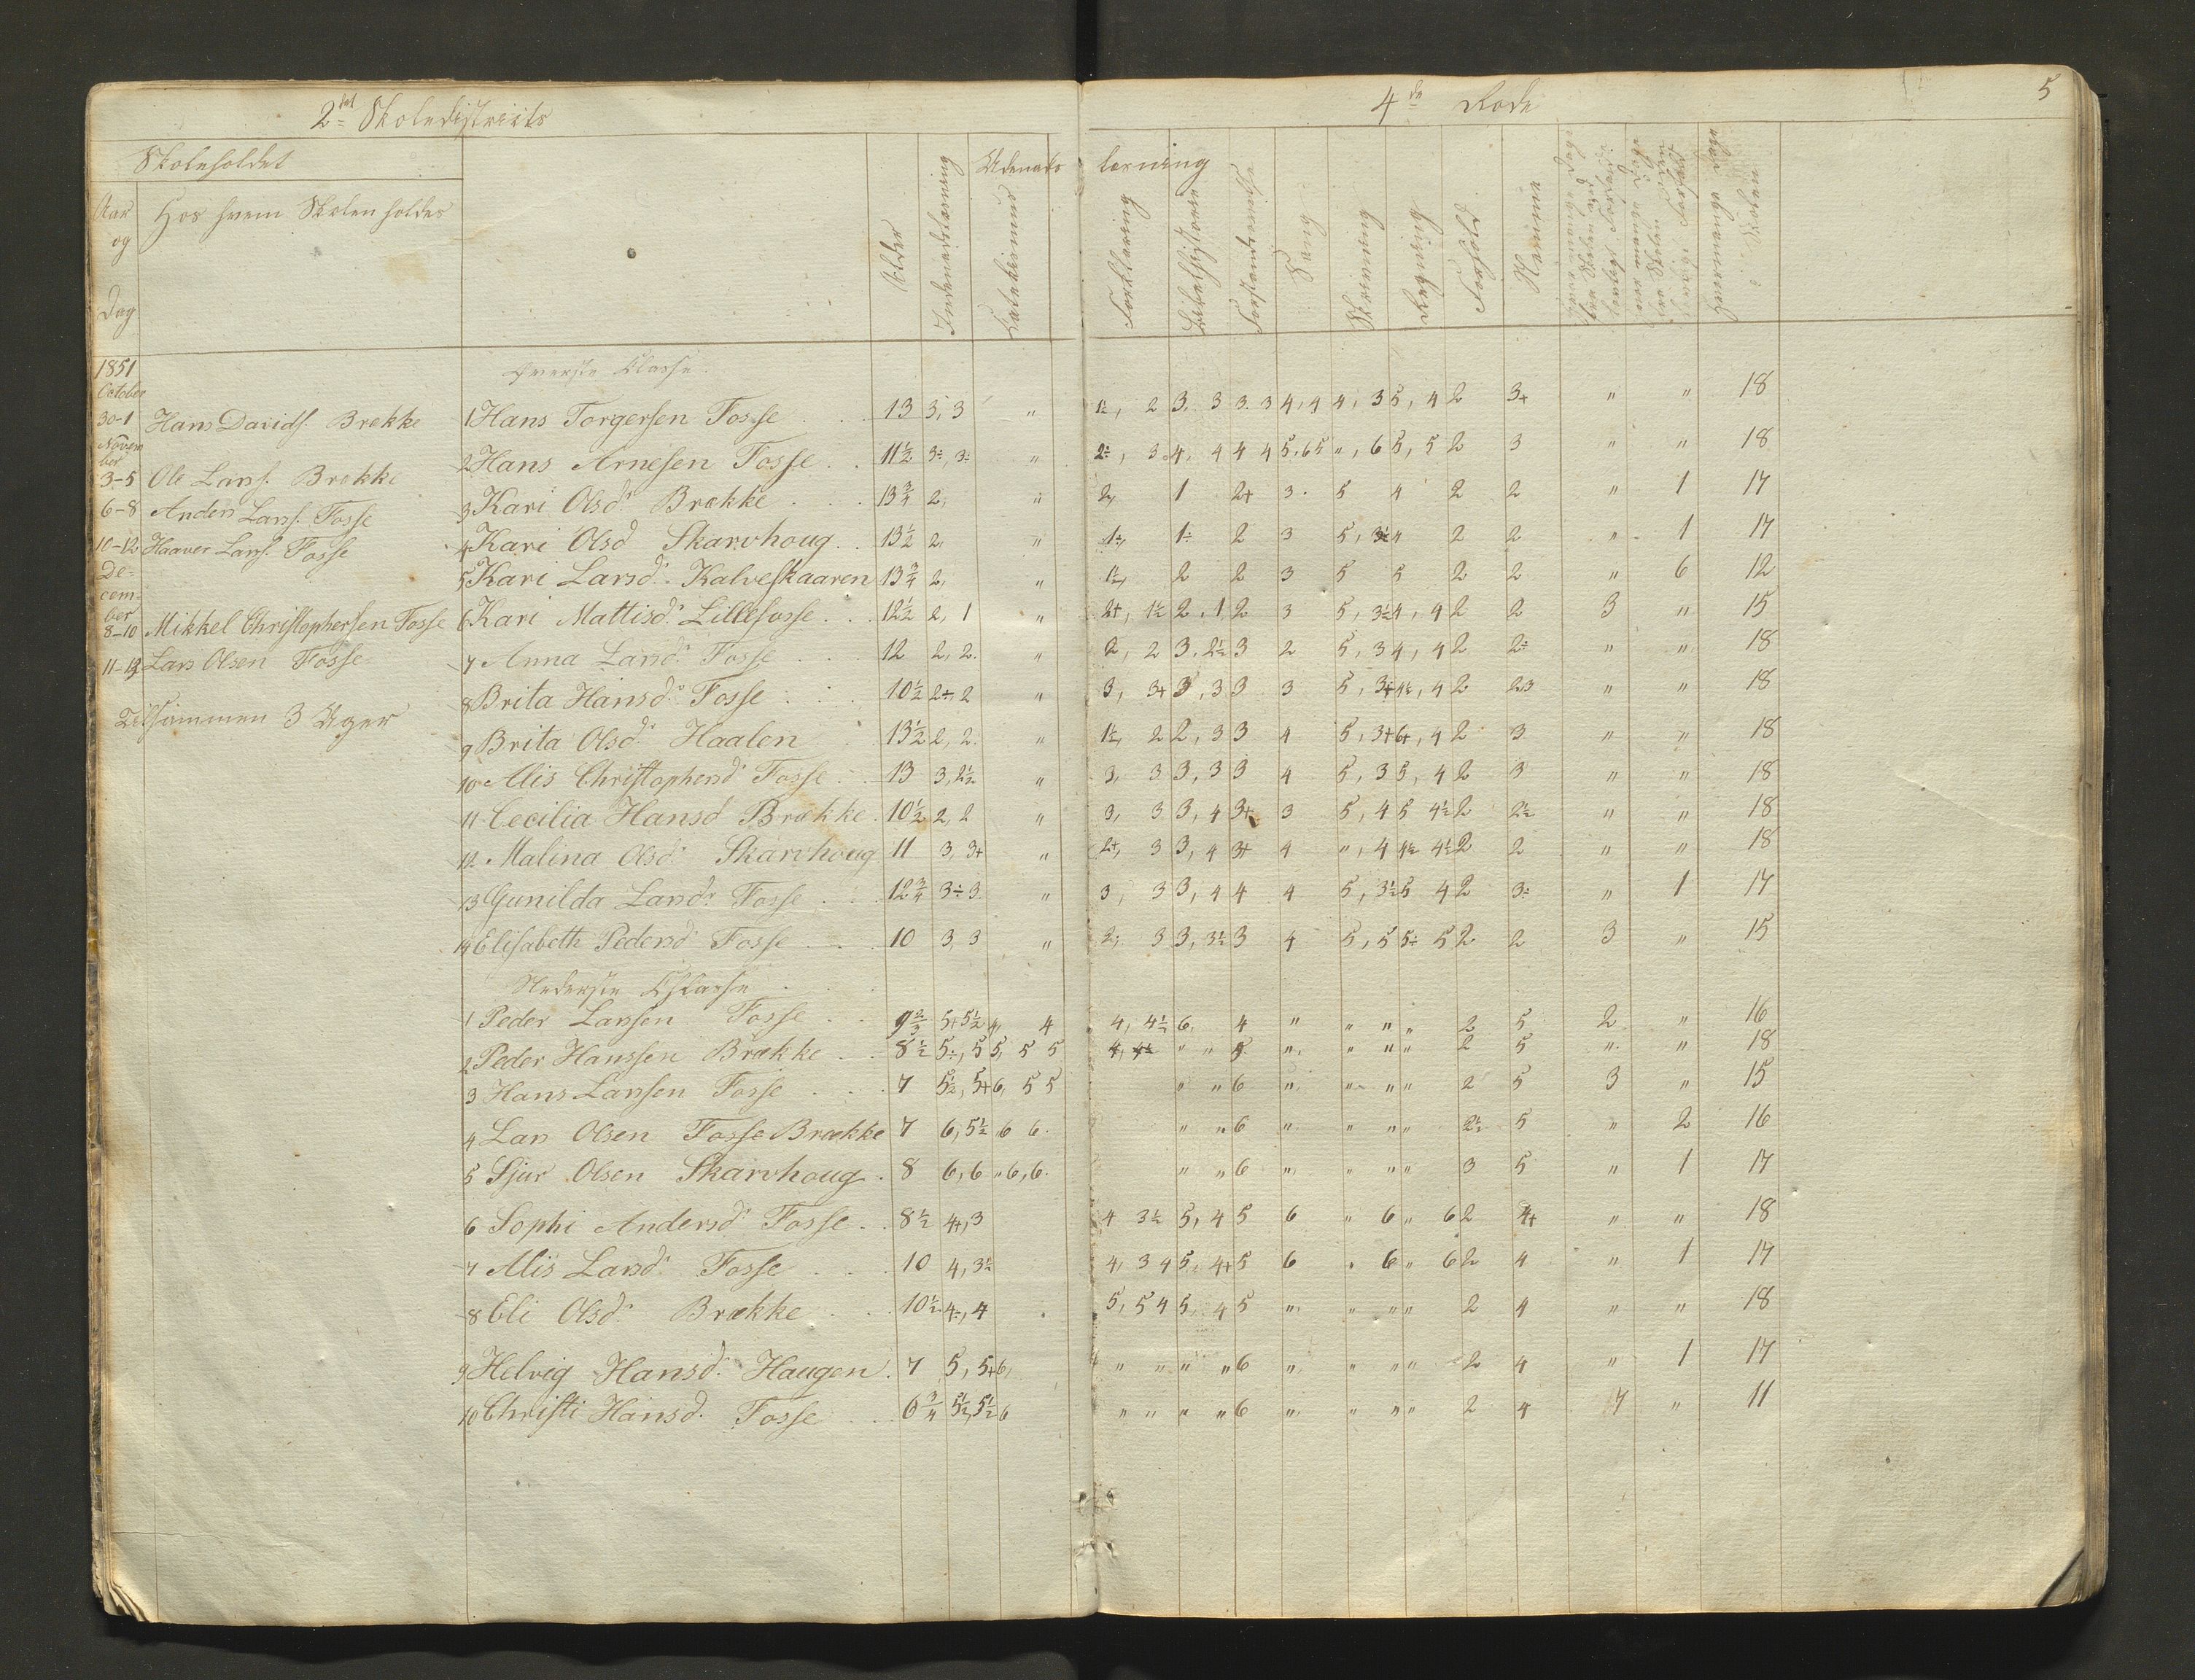 2det Skoledistricts
4de Rode
5
Skoleholdet
Aar og Dag
Hos hvem Skolen holdes
Alder
Indenadslæsning
Udenadslæsning
Catekismus
Forklaring
Bibelhistorie
Forstandsøvelse
Sang
Skrivning
Regning
Forhold
Evne
Hvormange Dage i Skolen
1851
October
30-1 Novem ber Hans Davids. Brekke
3-5 Ole Lars. Brekke
6-8 Anders Lars. Fosse
10-12 Haaver Lars. Fosse
De= cem= ber
8-10 Mikkel Christophersen Fosse
11-13 Lars Olsen Fosse
Tilsammen 3 Uger
Øverste Classe
1 Hans Torgersen Fosse . . 13 3, 3 " 1½, 2 3. 3 3. 3 4, 4 4, 3 5, 4 2 3+ " " 18
2 Hans Arnesen Fosse . . 11½ 3÷, 3÷ " 2÷, 3 4, 4 4 4 5, 6 5 ", 6 5, 5 2 3 " " 18
3 Kari Olsd. Brække . . 13¾ 2, " 2, 1 2+ 3 5 4 2 2 " 1 17
4 Kari Olsd Skarvhoug . 13½ 2, " 1÷, 1÷ 2 3 5, 3½ 4 2 2 " 1 17
5 Kari Larsd. Kalveskaaren 13¾ 2, " 1½, 2 2 3 5 5 2 2 " 6 12
6 Kari Mattisd. Lillefosse . . 12½ 2, 1 " 2+, 1½ 2, 1, 2 3 5, 3½ 4, 4 2 2 3 " 15
7 Anna Larsd. Fosse . . 12 2, 2. " 2, 2 3, 2½ 3 2 5, 3 4, 4 2 2÷ " " 18
8 Brita Hansd. Fosse . . 10½ 2+, 2 " 3, 3+ 3, 3 3 3 5, 3+ 4½, 4 2 2,3 " " 18
9 Brita Olsd. Haalen . 13½ 2, 2. " 1½, 2 2, 3 3 4 5, 3+ 6+, 4 2 3 " " 18
10 Alis Christophersd Fosse . 13 3, 2½ " 3, 3 3, 3 3 4 5, 3 5, 4 2 3 " " 18
11 Cecilia Hansd Brække . 10½ 2, 2 " 3, 3 3, 4 3+ 3 5, 4 5 4½ 2 2½ " " 18
12 Malina Olsd. Skarvhoug 11 3, 3+ " 2+, 3 3, 4 3+ 4 ", 4 4½ 4½ 2 2 " " 18
13 Gunilda Larsd. Fosse . . 12¾ 3÷ 3. " 3, 3 3, 4 4 4 5, 3½ 5 4 2 3÷ " 1 17
14 Elisabeth Pedersd Fosse . 10 3, 3 " 2, 3 3, 3½ 3 4 5, 5 5÷ 5 2 2 3 " 15
Nederste Classe . . .
1 Peder Larsen Fosse . . 9⅔ 5+ 5½ 4, 4 4, 4½ 6, 4 " " " " 2 5 2 " 16
2 Peder Hanssen Brække . . 8½ 5÷, 5 5, 5 5 4, 4½ " " 5 " " " " 2 5 " " 18
3 Hans Larsen Fosse . . 7 5½, 5+ 6, 5 5 " " 6 " " " " 2 5 3 " 15
4 Lars Olsen Fosse Brække 7 6, 5½ 6 6. " " 6 " " " " 2½ 5 " 2 16
5 Sjur Olsen Skarvhoug . 8 6, 6 " 6, 6. " " 6 " " " " 3 5 " 1 17
6 Sophi Andersd. Fosse . . 8½ 4+, 3 4 3½ 5, 4 5 6 " 6 " 6 2 4+ " " 18
7 Alis Larsd. Fosse . . 10 4, 3½ 4, 3 4 5, 4+ 5 6 " 6 " 6 2 4 " 1 17
8 Eli Olsd. Brække . . 10½ 4÷, 4 5, 5 4 5, 4 5 " " " " 2 4 " " 18
9 Helvig Hansd. Haugen . 7 5, 5+ 6, " " " " 6 " " " " 2 4 " 1 17
10 Christi Hansd. Fosse . . 6¾ 5½, 5½ 6 " " " " 6 " " " " 2 4 7 " 11